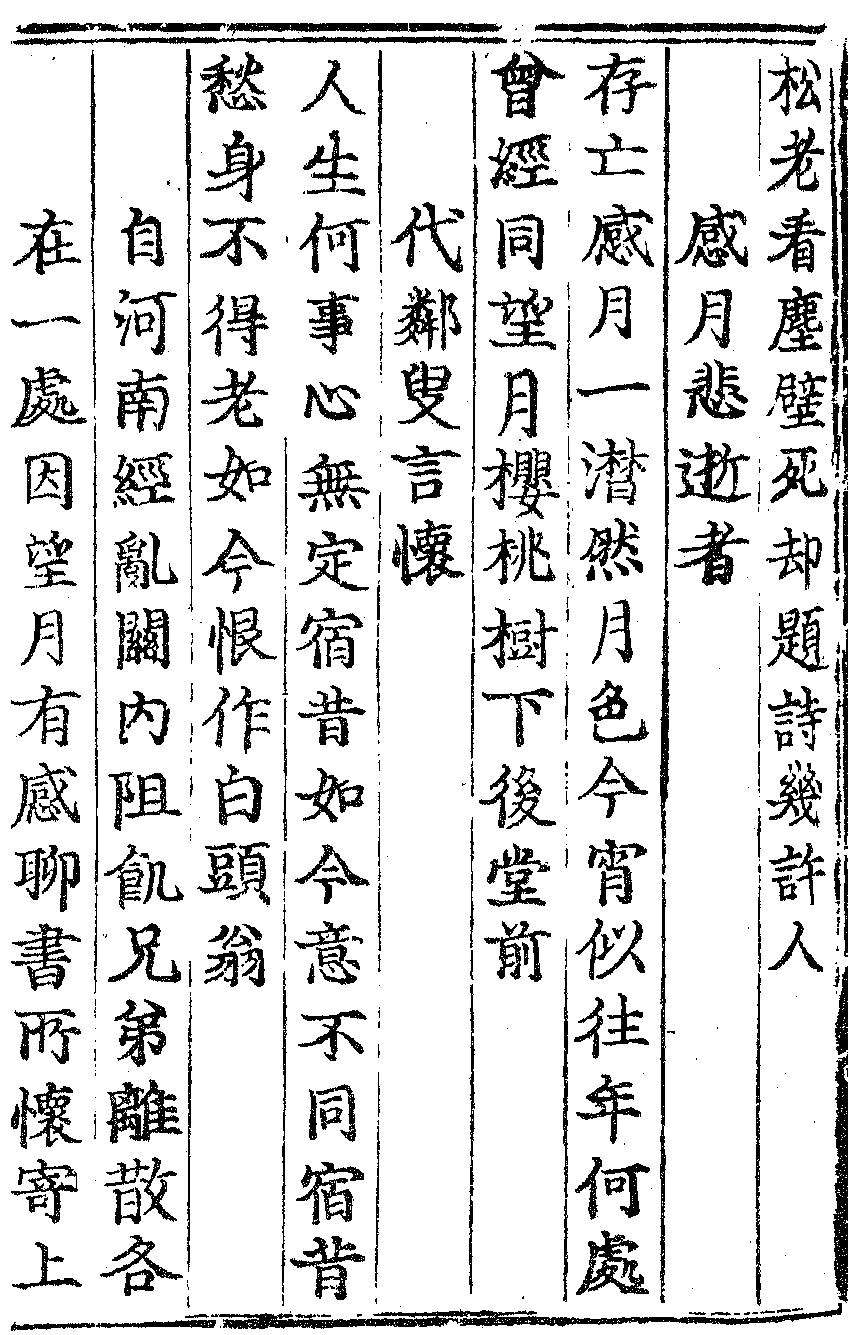 松老看塵壁死却題詩幾許人
感月悲逝者
存亡感月一潸然月色今宵似往年何處
曾經同望月櫻桃樹下後堂前
代鄰叟言懷
人生何事心無定宿昔如今意不同宿昔
愁身不得老如今恨作白頭翁
自河南經亂關內阻飢兄弟離散各
在一處因望月有感聊書所懷寄上